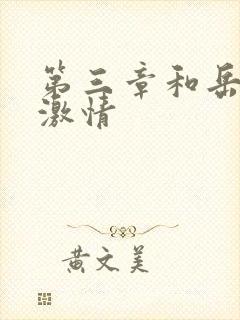 第三章和岳
激情
黄文美